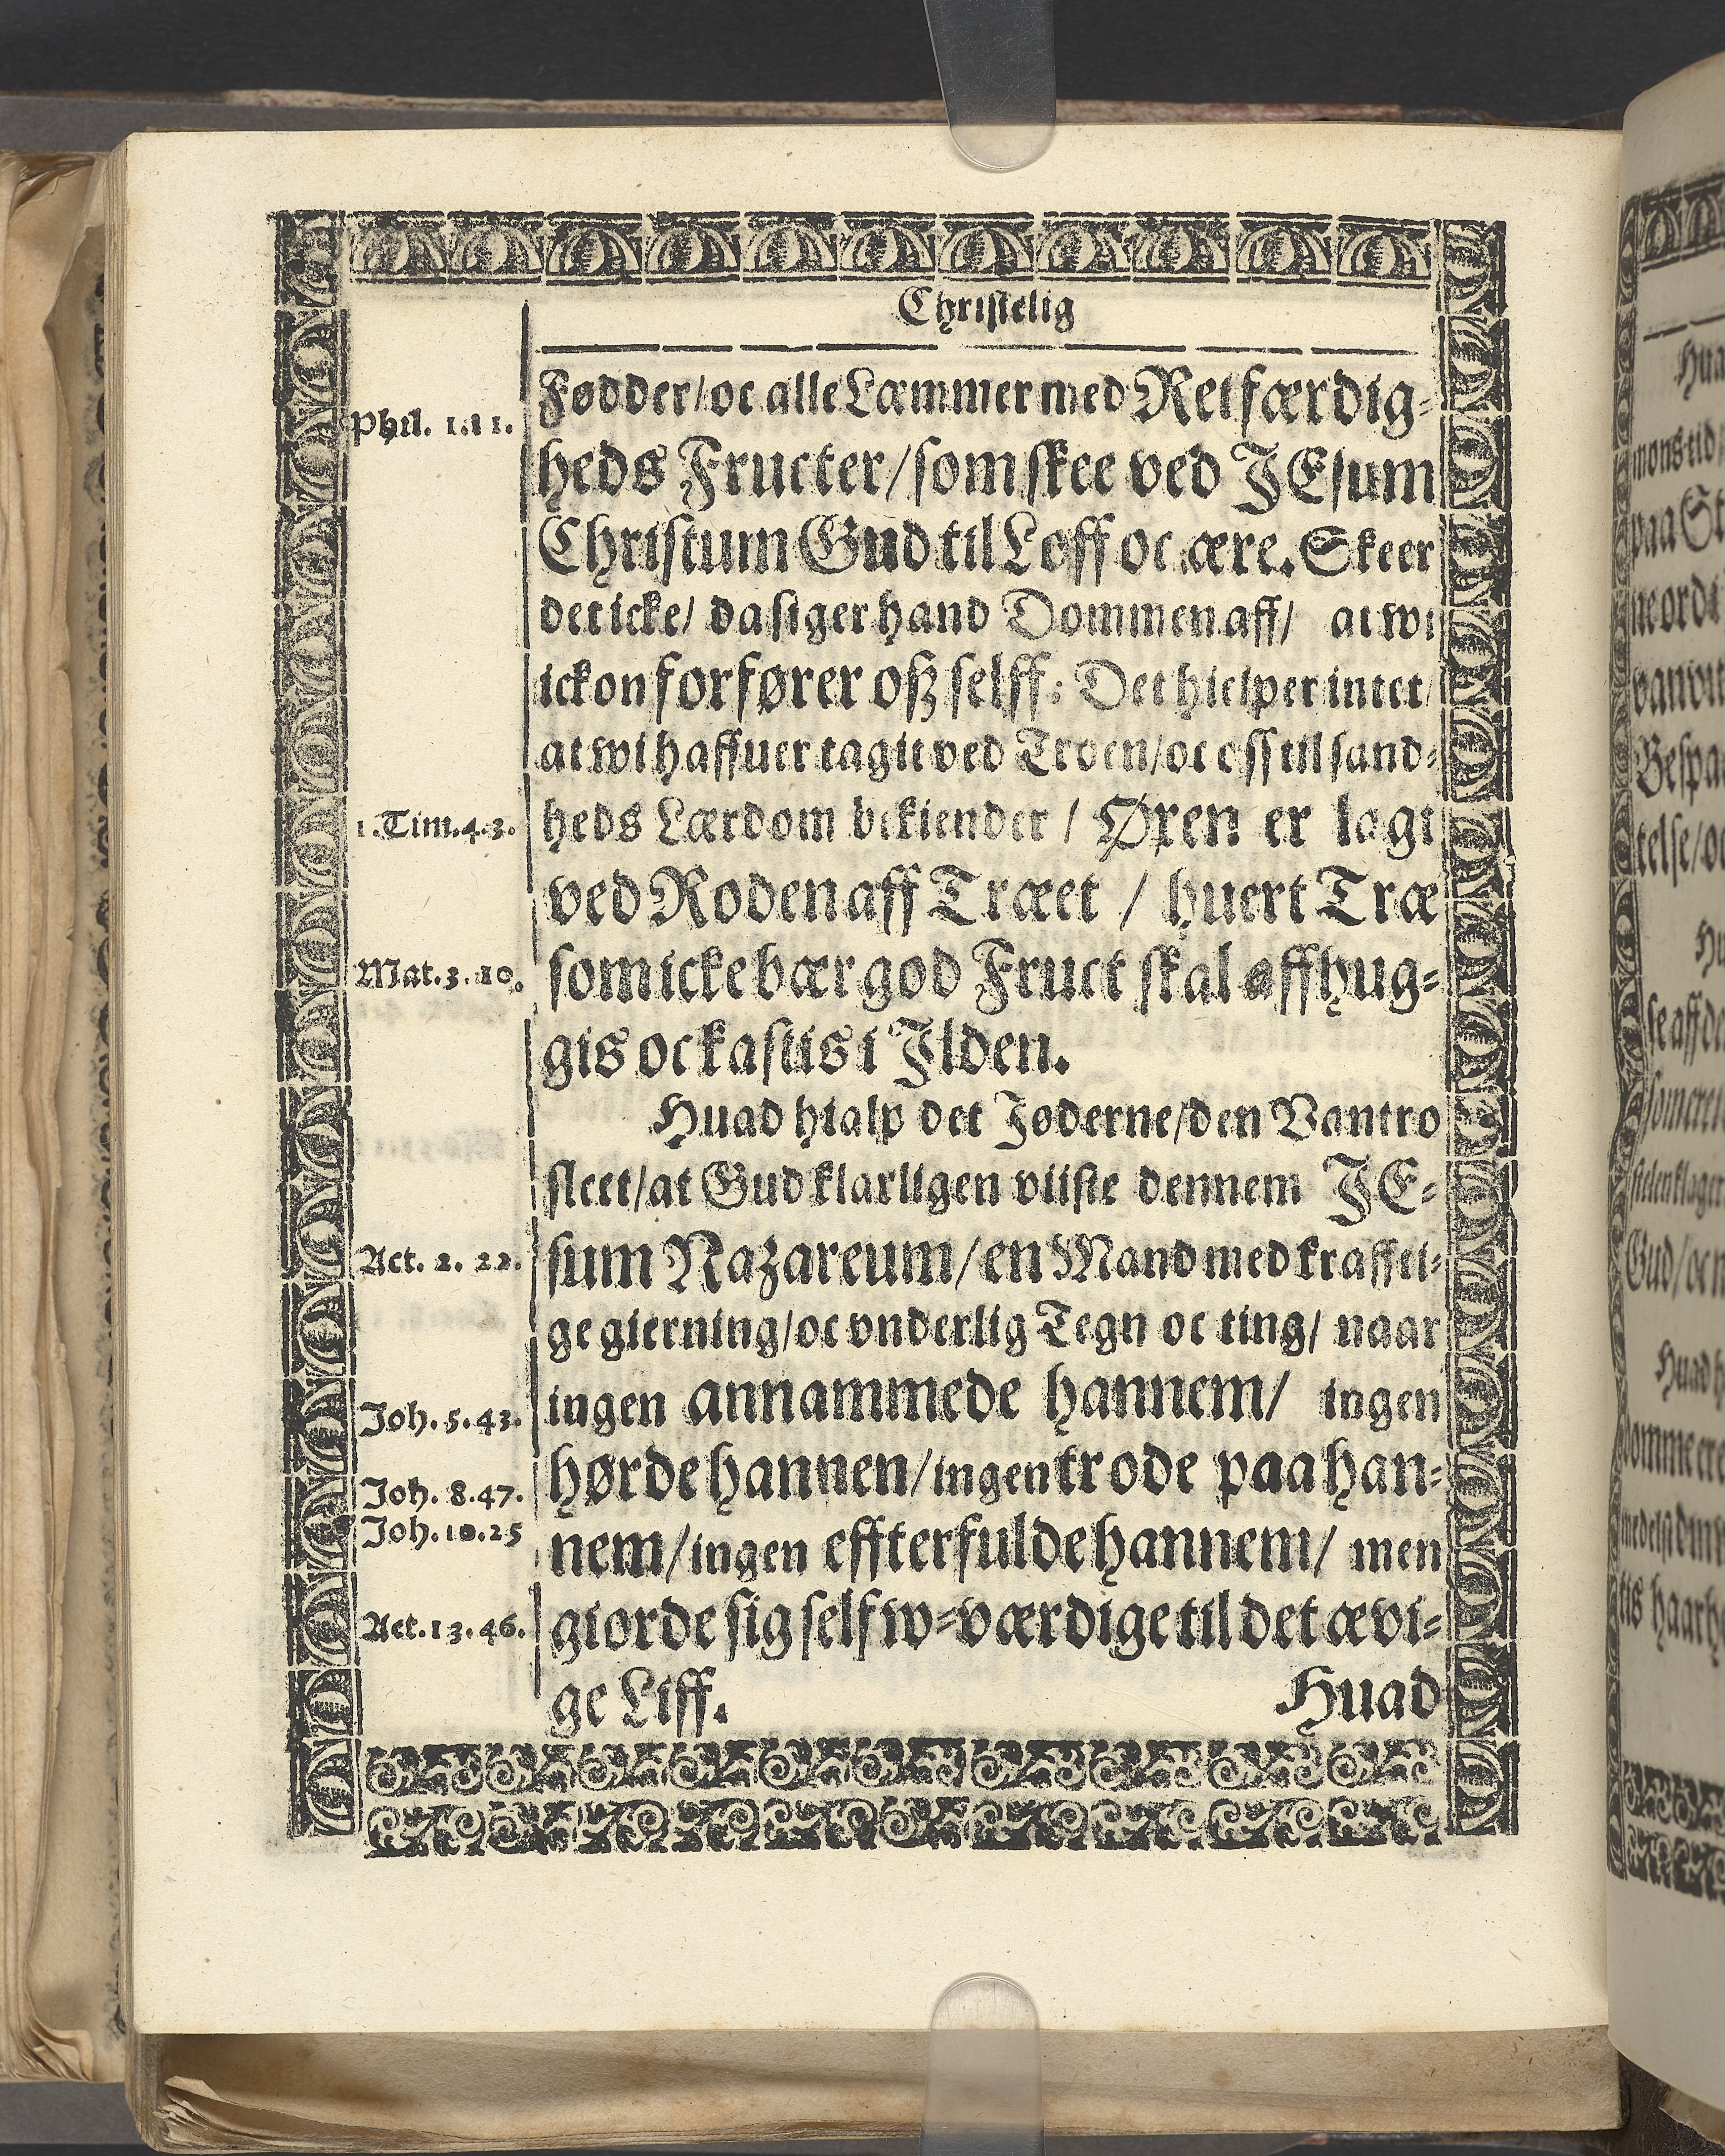 Christelig
Phil. 1.11.
Fødder/oc alle Læmmer med Retfærdig-
heds Fructer/som skee ved JEsum
Christum Gud til Loff oc ære. Skeer
det icke/ da siger hand Dommen aff/ at wi
ickon forfører oß selff: Det hielper intet/
at wi haffuer tagit ved Troen/oc oss til sand-
1.Tim.4.3.
heds Lærdom bekiender / Øxen er lagt
ved Roden aff Træet / huert Træ
Mat.3.10.
som icke bær god Fruct skal affhug-
gis oc kastis i Jlden.
Huad hialp det Jøderne/den Vantro
slect/at Gud klarligen viiste dennem JE-
Act. 2. 22.
sum Nazareum/en Mand med krafftl-
ge gierning/oc vnderlig Tegn oc ting/ naar
Joh. 5.43.
ingen annammede hannem/ ingen
Joh. 8.47.
hørde hannen/ingen trode paa han-
Joh.10.25
nem/ingen effterfulde hannem/ men
Act.13.46.
giorde sig self w-værdige til det ævi-
ge Liff.
Huad